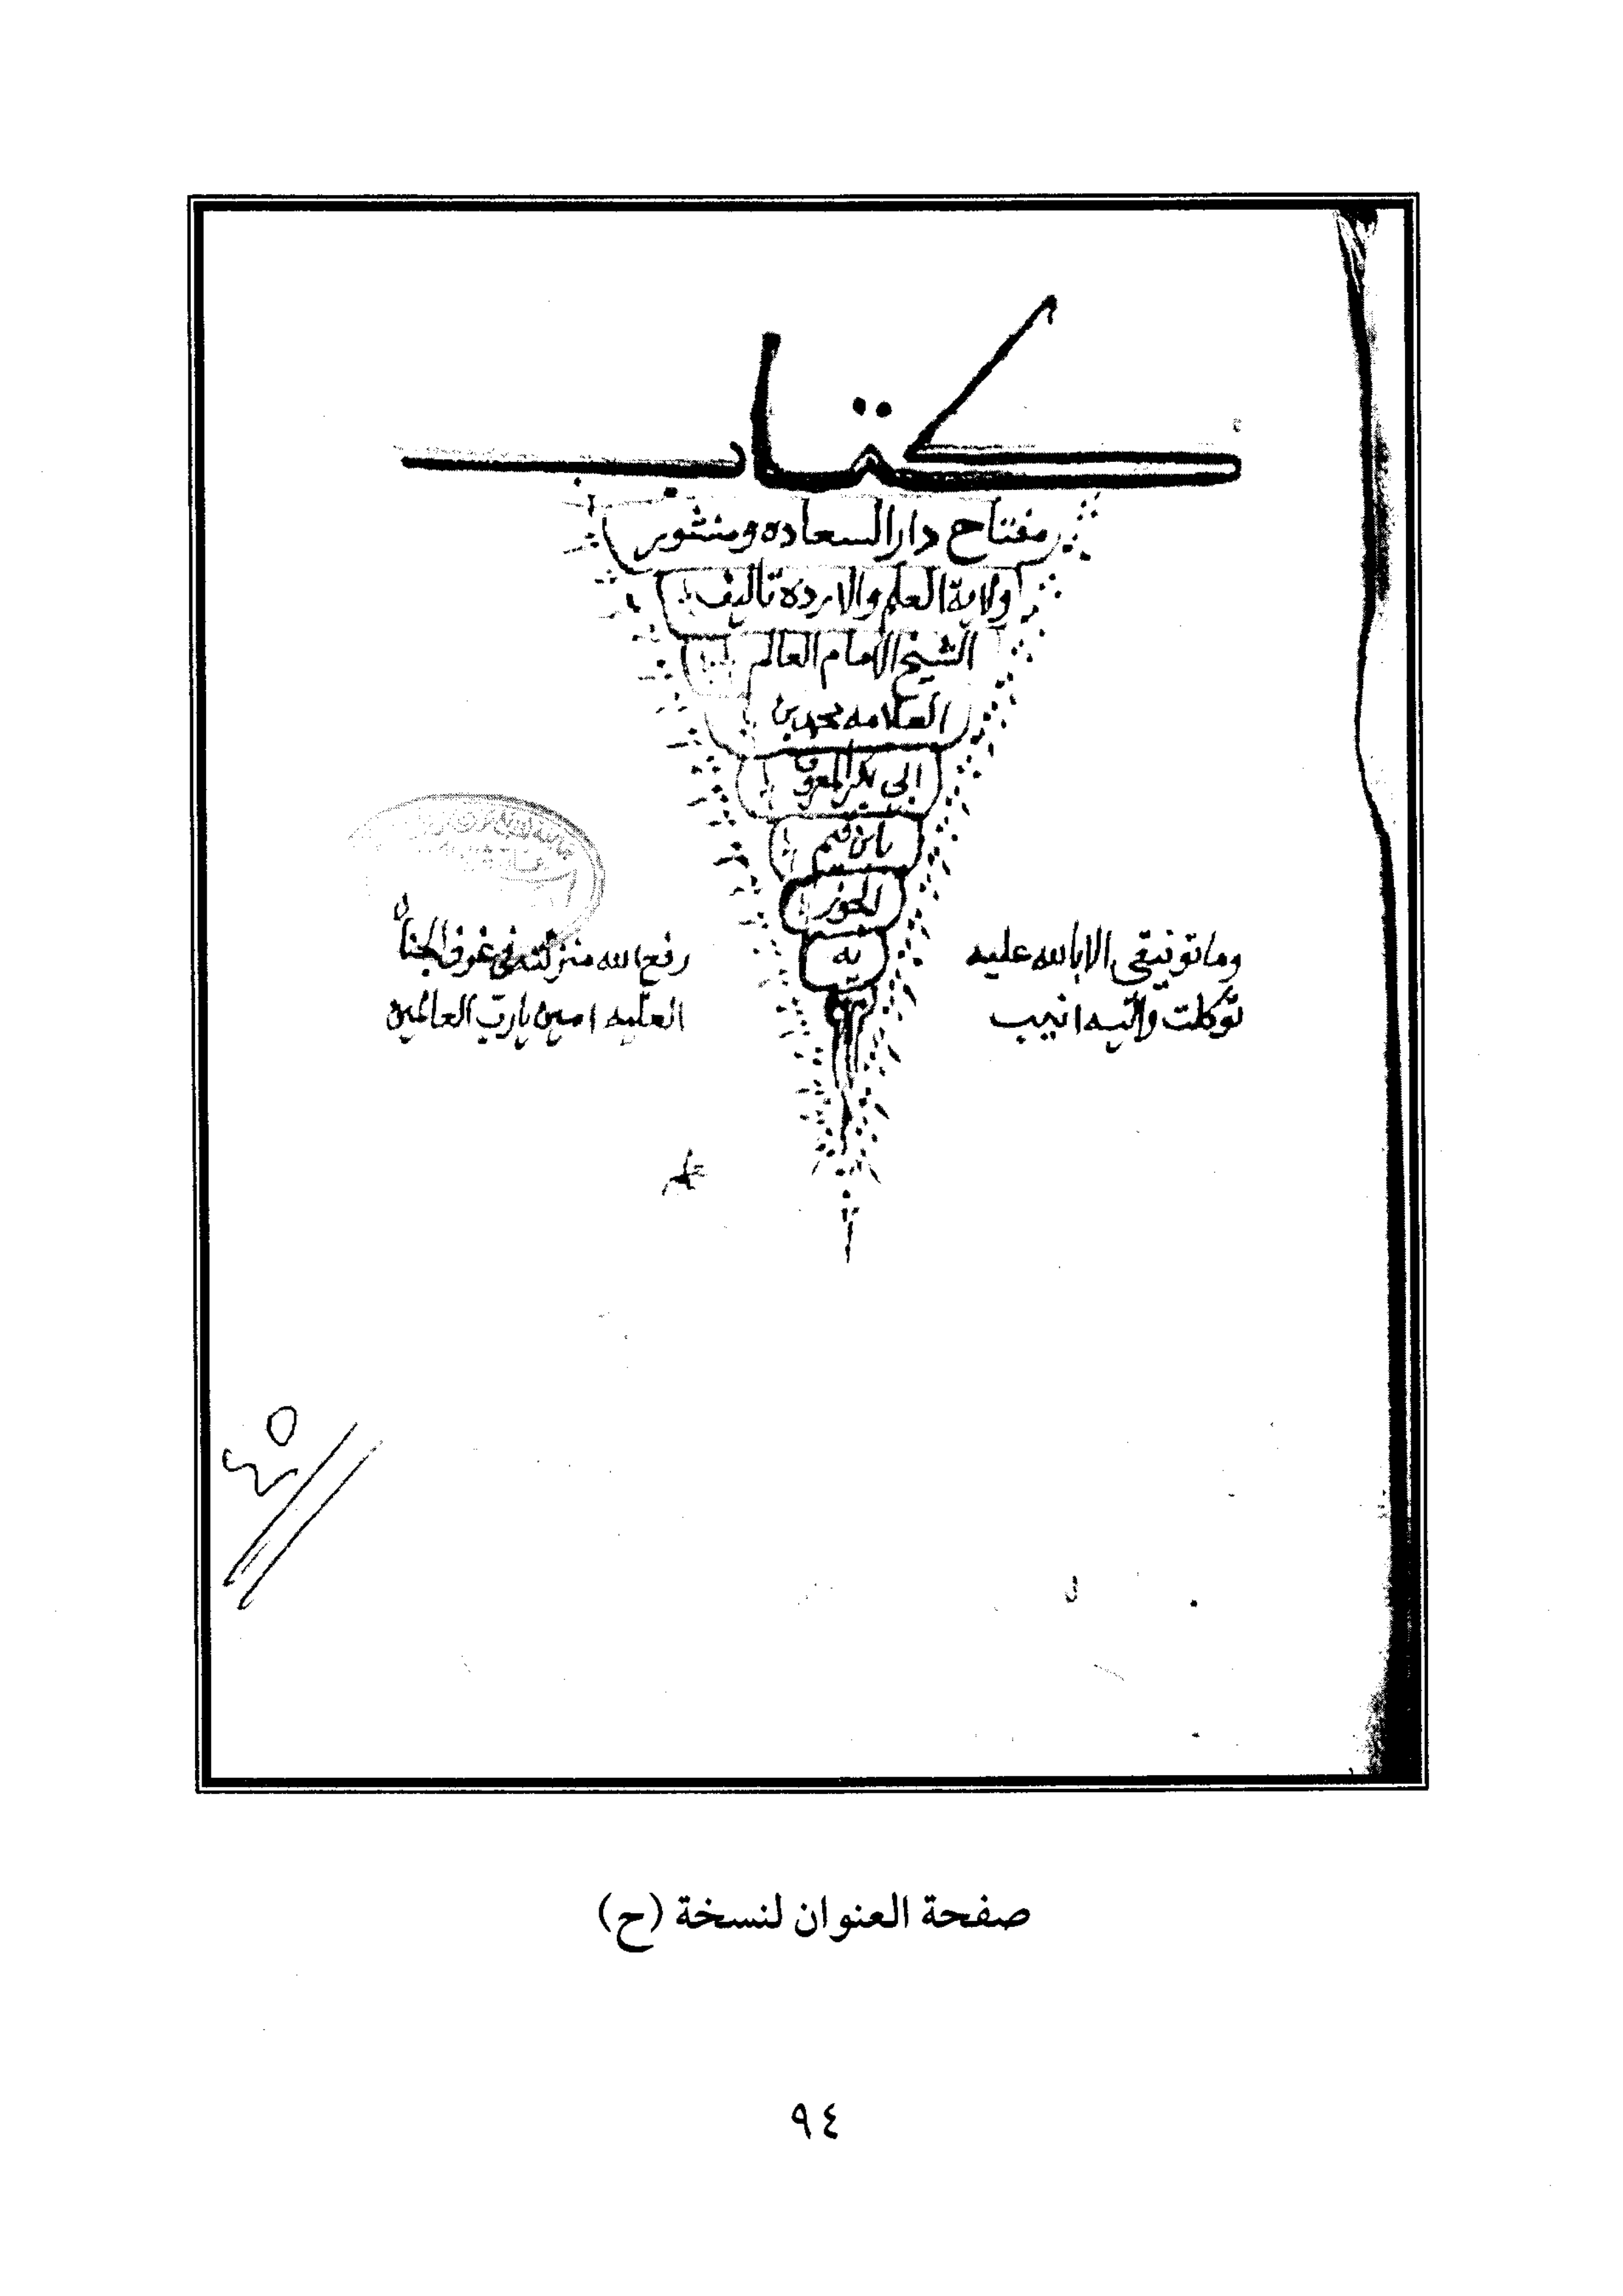 كتاب
مفتاح دار السعاده ومنشور
ولاية العلم والارده تاليف
الشيخ الامام العالم
العلامه محمد بن
ابي بكر المعروف
بابن قيم
الجوز
يه
وما توفيقي الا بالله عليه
توكلت واليه انيب
رفع الله منزلته في غرف الجنان
العليه امين يارب العالمين
صفحة العنوان لنسخة (ح)
٩٤